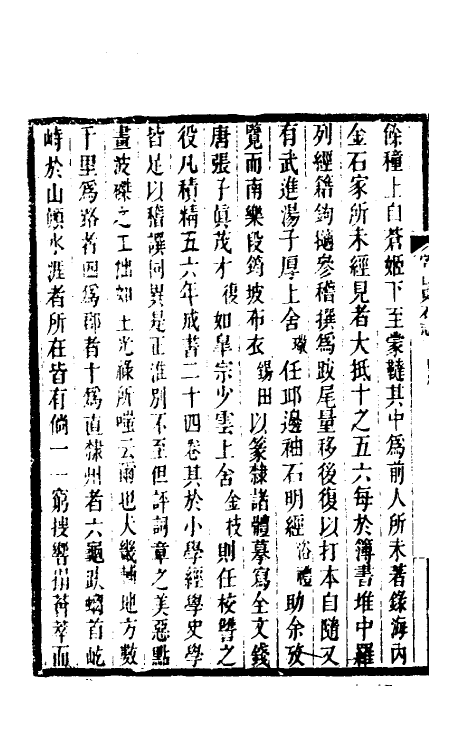 餘種上自蒼姬下至蒙韃其中爲前人所未著錄海內
金石家所未經見者大抵十之五六每於簿書堆中羅
列經籍鉤擿參稽撰爲跋尾量移後復以打本自隨又
有武進湯子厚上舍 任邱邊袖石明經浴禮助余攷
覽而南樂段筠坡布衣錫田以篆隸諸體摹寫全文錢
唐張子眞茂才復如皋宗少雲上舍金枝則任校讐之
役凡積精五六年成書二十四卷其於小學經學史學
皆足以稽譔同異是正淮別不至但評詞章之美惡點
畫波磔之工拙如王光祿所嗤云爾也夫畿輔地方數
千里爲路者四爲郡者十爲直隸州者六龜趺螭首屹
峙於山巔水涯者所在皆有倘一一窮搜響搨薈萃而